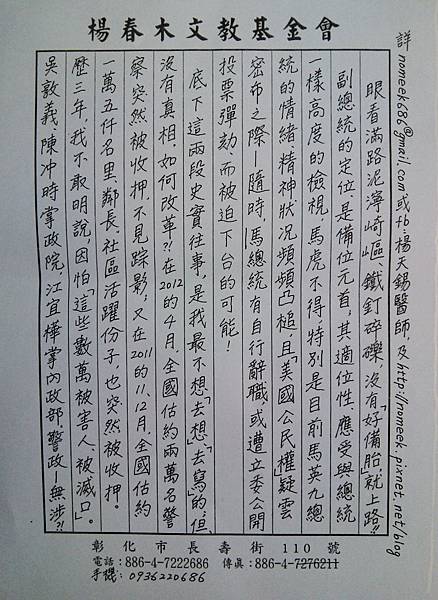 楊春木文教基金會
詳 nomeek686@gmail.com 或 fb 楊天錫醫師, 及 http://nomeek.pixnet.net/blog
眼看滿路泥濘崎嶇、鐵釘碎礫,沒有「好備胎」就上路?!
副總統的定位是備位元首,其適位性、應受與總統
一樣高度的檢視,馬虎不得特別是目前馬英九總
統的情緒精神狀況頻頻凸槌,且「美國公民權」疑雲
密布之際—隨時,馬總統有自行辭職,或遭立委公開
投票彈劾而被迫下台的可能!
底下這兩段史實往事,是我最不想「去想」「去寫」的,但
沒有真相,如何改革?! 在2012的4月,全國估約兩萬名警
察突然被收押,不見踪影;又在2011的11、12月,全國估約
一萬五仟名里、鄰長、社區活躍份子,也突然被收押。
歷三年,我不敢明說,因怕「這些數萬被害人、被滅口」。
吳敦義、陳冲時掌政院,江宜樺掌內政部、警政—無涉?!
彰化市長壽街110號
電話:886-4-7222686 傳真:886-4-7276211
手機: 0936220686